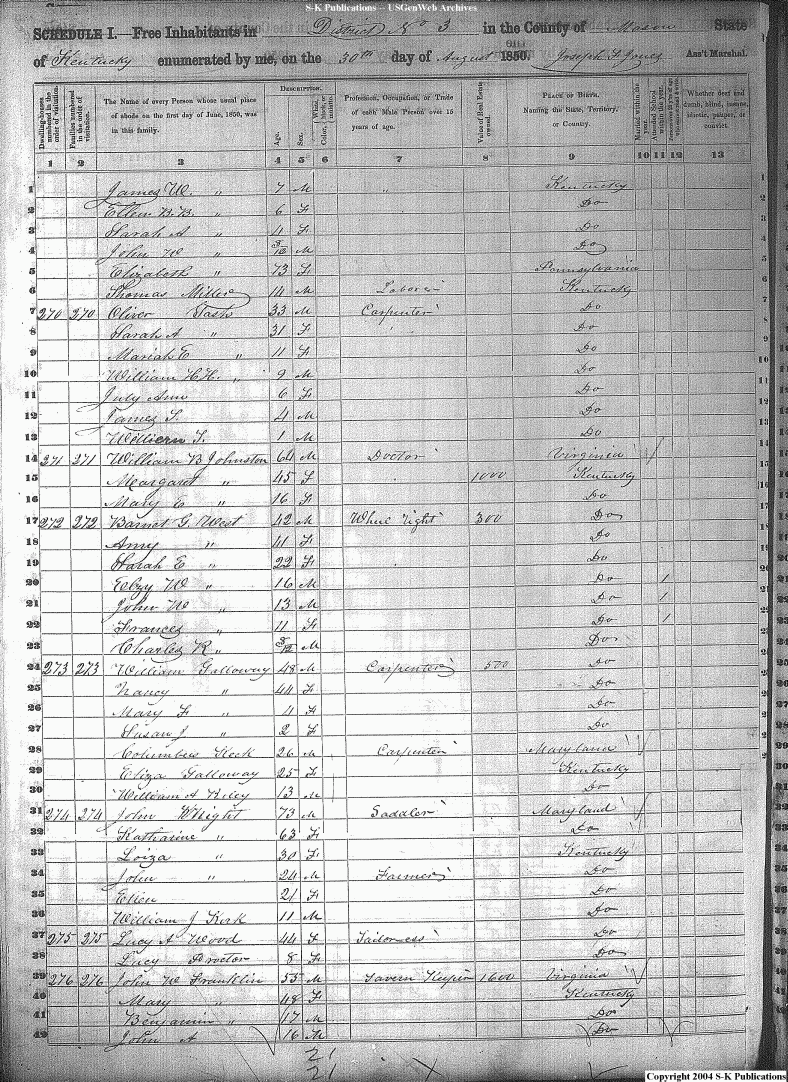 S-K Publications -- USGenWeb Archives
SCHEDULE I.—Free Inhabitants in District No 3 in the County of Mason State
of Kentucky enumerated by me, on the 30th day of August 1850. Joseph F. Jones Ass't Marshal.
Dwelling-houses numbered in the order of visitation. Families numbered in the order of visitation. The Name of every Person whose usual place of abode on the first day of June, 1850, was in this family. Description. Age. Sex. White, Black, or mulatto. Color, Profession, Occupation, or Trade of each Male Person over 15 years of age. Value of Real Estate owned. Place of Birth. Naming the State, Territory, or Country. Married within the year. Attended School within the year. Whether deaf and dumb, blind, insane, idiotic, pauper, or convict.
1 2 3 4 5 6 7 8 9 10 11 12 13
1 James W. " 7 M " Kentucky
2 Ellen B.B. " 6 F Do
3 Sarah A " 4 F Do
4 John W " 3/12 M Do
5 Elizabeth " 73 F Pennsylvania
6 Thomas Miller 14 M Laborer Kentucky
7 270 270 Oliver Tash 33 M Carpenter Do
8 Sarah A " 31 F Do
9 Mariah E " 11 F Do
10 William H.H. " 9 M Do
11 July Ann 6 F Do
12 James S. 4 M Do
13 William T. 1 M Do
14 271 271 William B Johnston 64 M Doctor Virginia /
15 Margaret " 45 F 1000 Kentucky
16 Mary E " 16 F Do
17 272 272 Barnet G. West 42 M Wheel right 300 Do
18 Amy " 41 F Do
19 Sarah E " 22 F Do
20 Elzy W " 16 M Do 1
21 John W " 13 M Do 1
22 Frances " 11 F Do 1
23 Charles R " M Do
24 273 273 William Galloway 48 M Carpenter 500 Do
25 Nancy " 44 F Do
26 Mary F " 4 F Do
27 Susan J " 2 F Do
28 Columbus Keck 26 M Carpenter Maryland /
29 Eliza Galloway 25 F Kentucky
30 William A Riley 13 M Do
31 274 274 John Whight 73 M Saddler Maryland /
32 Katharine " 63 F Do /
33 Loiza " 30 F Kentucky
34 John " 24 M Farmer Do
35 Ellen 21 F Do
36 William J Kirk 11 M Do
37 275 275 Lucy A Wood 44 F Tailoress Do
38 Lucy Proctor 8 F Do
39 276 276 John W Franklin 55 M Tavern Keeper 1600 Virginia /
40 Mary " 48 F Kentucky
41 Benjamin " 17 M Do
42 John A 16 M Do
21
21
Copyright 2004 S-K Publications